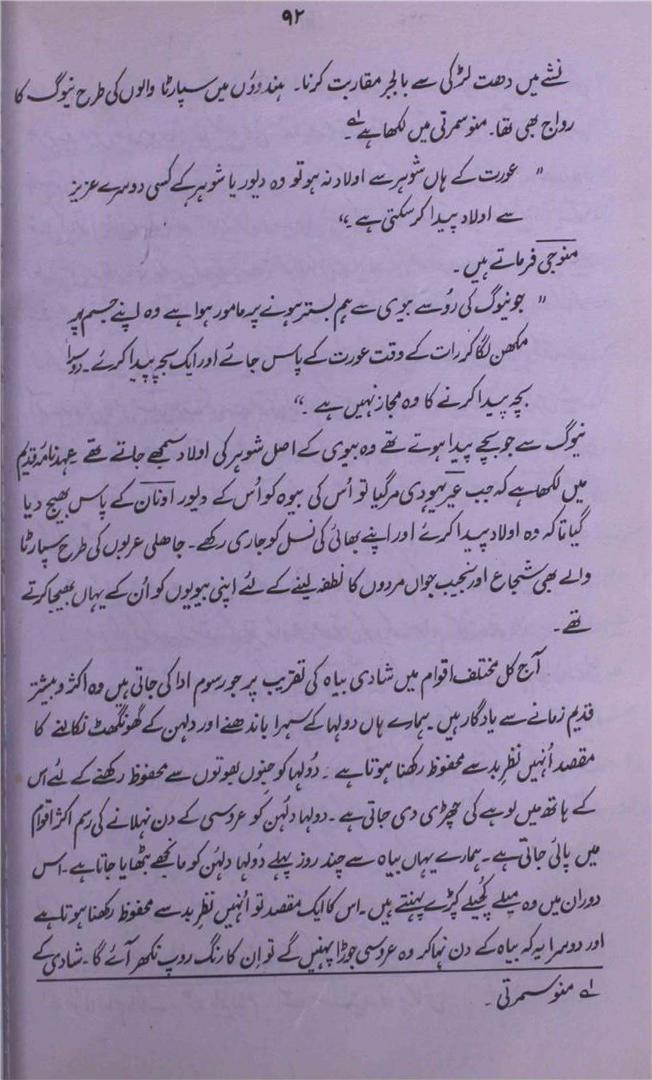 ۹۲
نشے میں دھت لڑکی سے بالجبر مقاربت کرنا۔ ہندوؤں میں سپارٹا والوں کی طرح نیوگ کا
رواج بھی تھا۔ منوسمرتی میں لکھا ہے ؎۱۔
" عورت کے ہاں شوہر سے اولاد نہ ہو تو وہ دیور یا شوہر کے کسی دوسرے عزیز
سے اولاد پیدا کر سکتی ہے ۔"
منوجی فرماتے ہیں ۔
" جو نیوگ کی رُو سے بیوی سے ہم بستر ہونے پر مامور ہوا ہے وہ اپنے جسم پر
مکھن لگا کر رات کے وقت عورت کے پاس جائے اور ایک بچہ پیدا کرے ۔ دوسرا
بچہ پیدا کرنے کا وہ مجاز نہیں ہے ۔"
نیوگ سے جو بچے پیدا ہوتے تھے وہ بیوی کے اصل شوہر کی اولاد سمجھے جاتے تھے ۔ عہد نامۂ قدیم
میں لکھا ہے کہ جب عیر یہودی مر گیا تو اُس کی بیوہ کو اُس کے دیور اونان کے پاس بھیج دیا
گیا تاکہ وہ اولاد پیدا کرے اور اپنے بھائی کی نسل کو جاری رکھے۔ جاھلی عربوں کی طرح سپارٹا
والے بھی شجاع اور نجیب جواں مردوں کا نطفہ لینے کے لئے اپنی بیویوں کو اُن کے یہاں بھیجا کرتے
تھے ۔
آج کل مختلف اقوام میں شادی بیاہ کی تقریب پر جو رسوم ادا کی جاتی ہیں وہ اکثر و بیشتر
قدیم زمانے سے یادگار ہیں ۔ ہمارے ہاں دولہا کے سہرا باندھنے اور دلہن کے گھونگھٹ نکالنے کا
مقصد اُنہیں نظرِ بد سے محفوظ رکھنا ہوتا ہے ۔ دُولہا کو جنوں بھوتوں سے محفوظ رکھنے کے لئے اس
کے ہاتھ میں لوہے کی چھڑی دی جاتی ہے ۔ دولہا دلہن کو عروسی کے دن نہلانے کی رسم اکثر اقوام
میں پائی جاتی ہے ۔ ہمارے یہاں بیاہ سے چند روز پہلے دُولہا دلہن کو مانجھے بٹھایا جاتا ہے ۔ اس
دوران میں وہ میلے کچیلے کپڑے پہنتے ہیں ۔ اس کا ایک مقصد تو اُنہیں نظرِ بد سے محفوظ رکھنا ہوتا ہے
اور دوسرا یہ کہ بیاہ کے دن نہا کر وہ عروسی جوڑا پہنیں گے تو اِن کا رنگ روپ نکھر آئے گا ۔ شادی کے
؎۱ منوسمرتی ۔